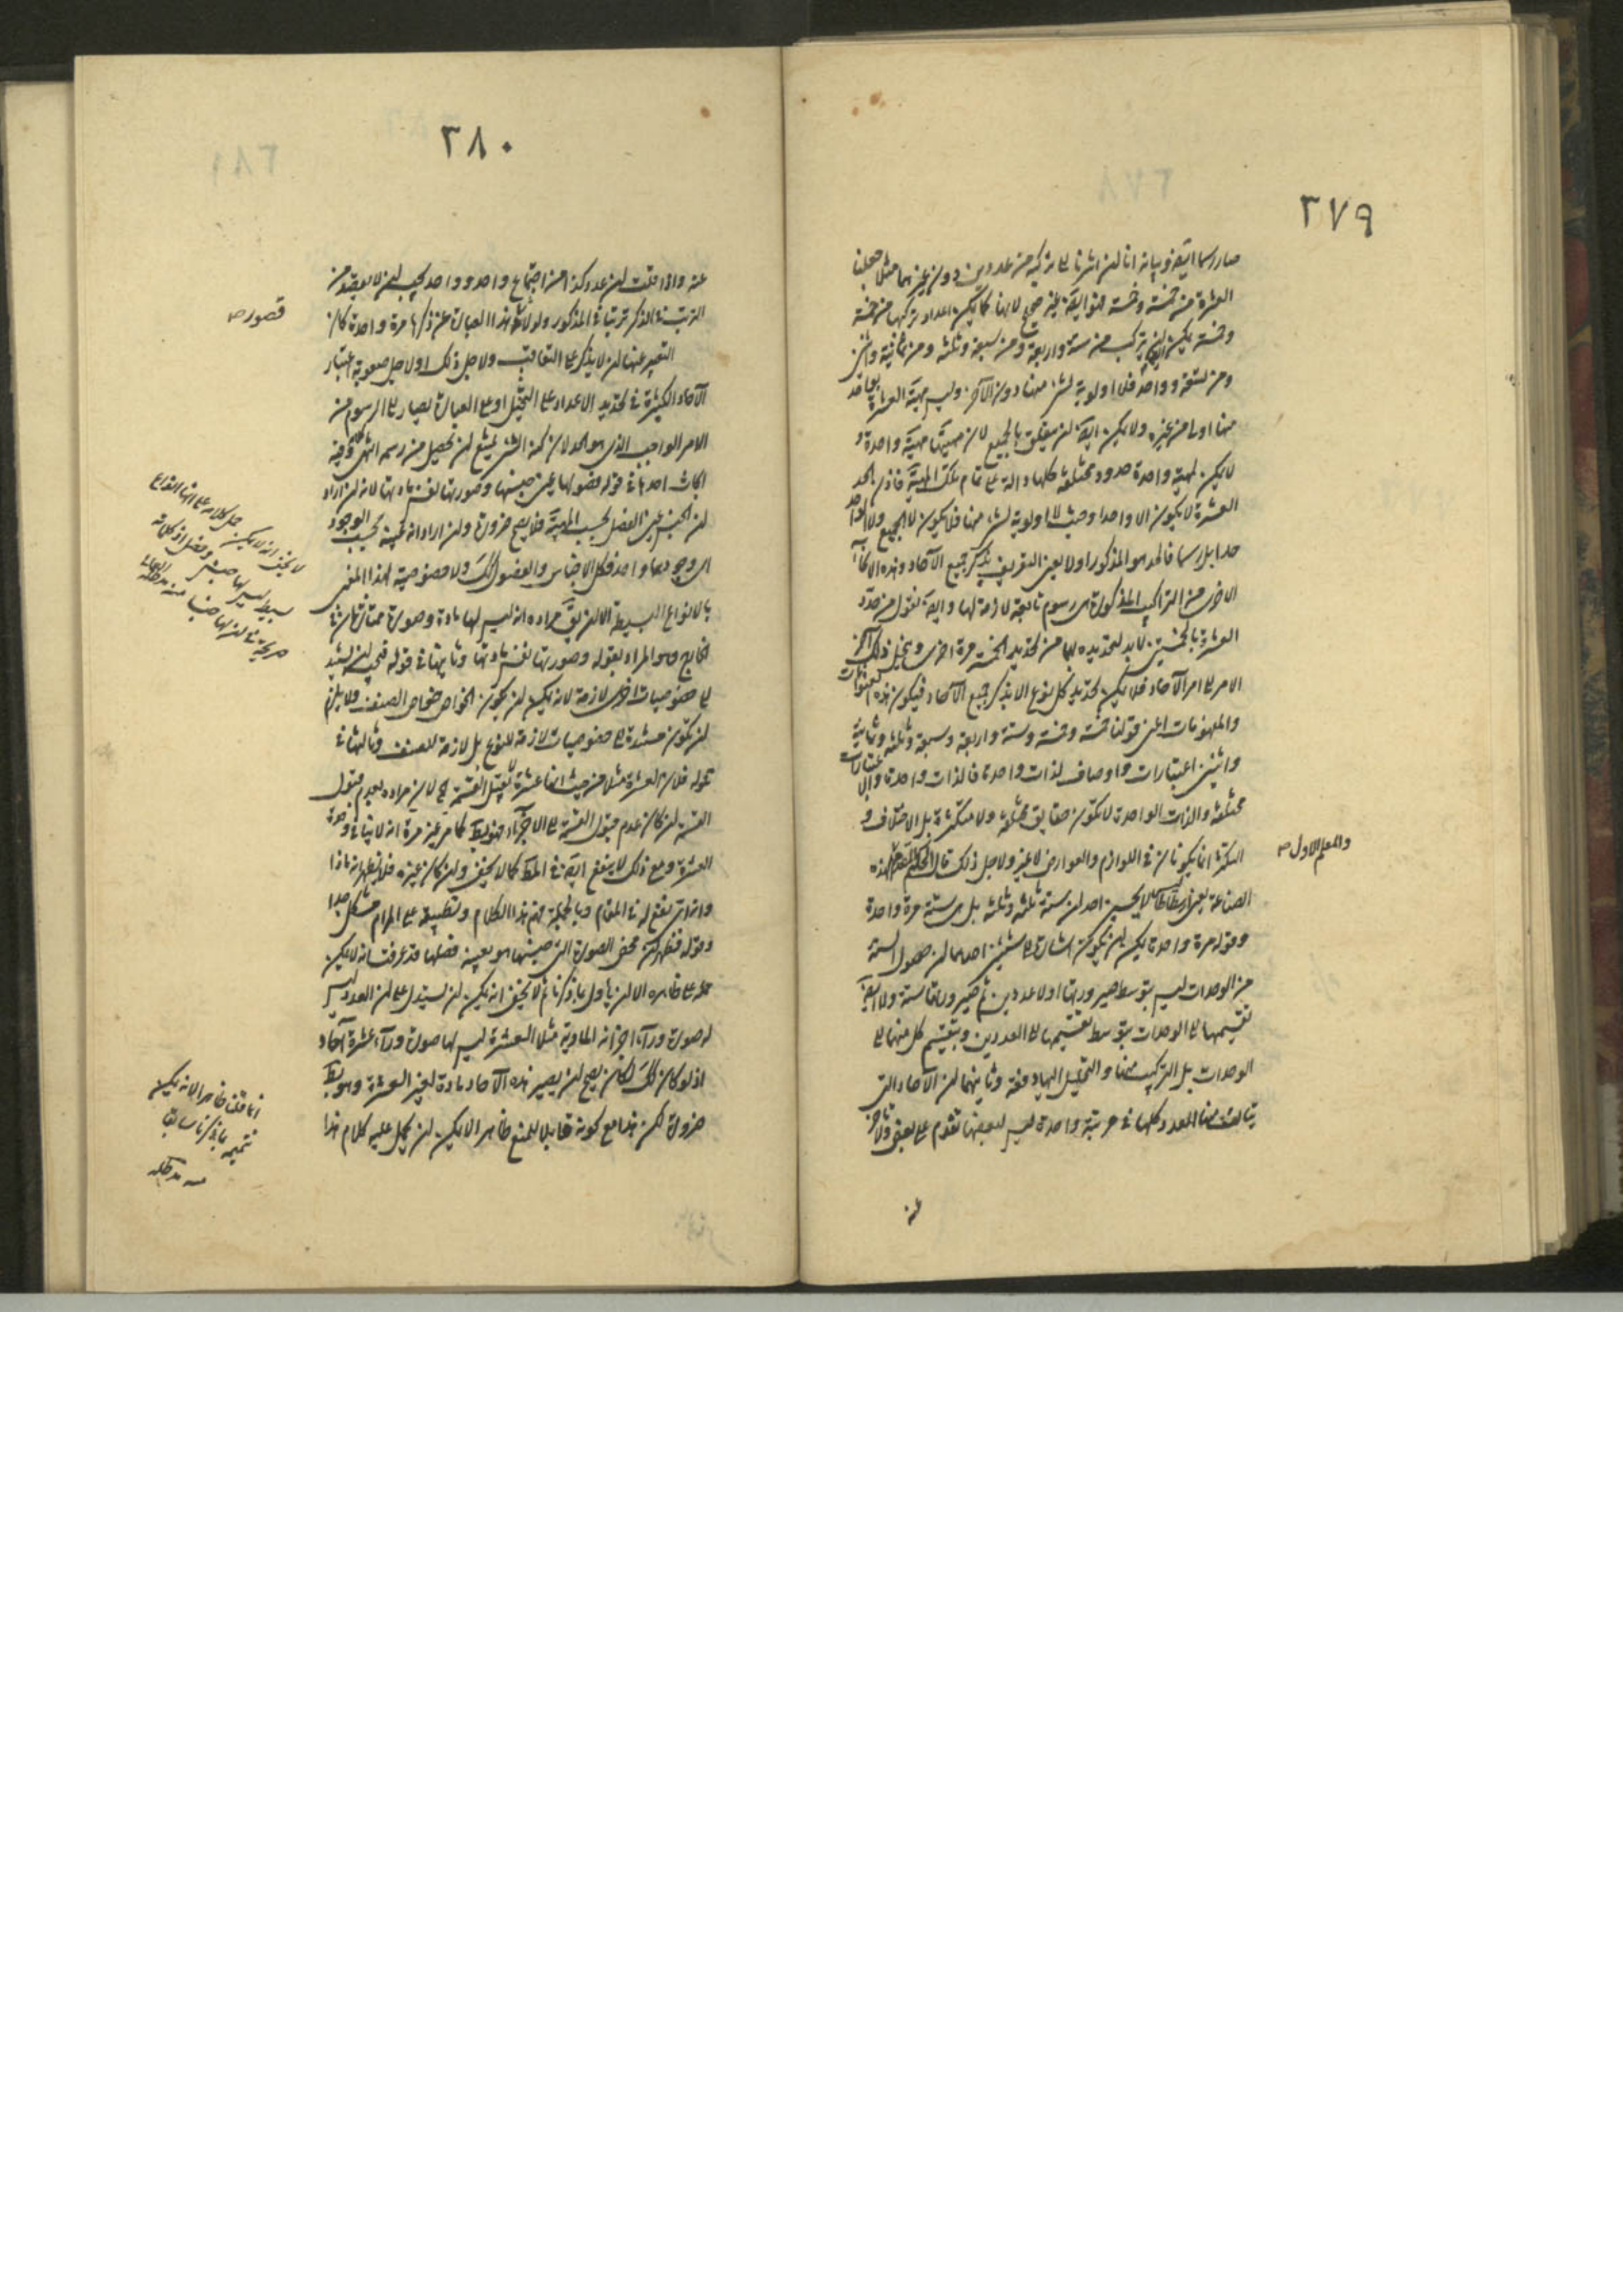 ٢٧٩
صار رسما ايضا وبيانه انا لن اشرنا الى تركيبه من عددين دون غيرهما مثلا جعلنا
العشرة من خمسة وخمسة فهو ايضا غير صحيح لانها كما يمكن اعداد تركبها من خمسة
وخمسة يمكن ان يتركب من ستة واربعة ومن سبعة وثلثة ومن ثمانية واثنين
ومن تسعة وواحد فلا اولوية لشئ منها دون الآخر وليس مهية العشرة بواحد
منها اولى من غيره ولا يمكن ايضا لن يتعلق بالجميع لان مهيتها مهية واحدة و
لا يمكن لمهية واحدة حدود مختلفة كلها دالة على تمام تلك المهية فاذن حد
العشرة لا يكون الا واحدا وحيث لا اولوية لشئ منها فلا يكون لا الجميع ولا الواحد
حدا بل رسما فالحد هو المذكور اولا يعنى التعريف بذكر جميع الآحاد وهذه الانحاء
الاخرى من التراكيب المذكورة هى رسوم تابعة لازمة لها وايضا نقول من حدد
العشرة بالخمستين لا بد لتحديده لها من تحديد الخمسة مرة اخرى وينحل ذلك آخر
الامر الى امر الآحاد فلا يمكن تحديد كل نوع الا بذكر جميع الآحاد فيكون هذه العنوانات
والمفهومات اعنى قولنا خمسة وخمسة وستة واربعة وسبعة وثلثة وثمانية
واثنين اعتبارات واوصاف لذات واحدة فالذات واحدة والاعتبارات
مختلفة والذات الواحدة لا تكون حقايق مختلفة ولا متكثرة بل الاختلاف و
التكثر انما يكونان فى اللوازم والعوارض لا غير ولاجل ذلك قال الحكيم المقدم لهذه
والمعلم الاول صح
الصناعة يعنى ارسطاطاليس لا يحسبن احد لن ستة ثلثة وثلثة بل هى ستة مرة واحدة
وقوله مرة واحدة يمكن لن يكون اشارة الى شيئين احدهما لن حصول الستة
من الوحدات ليس بتوسط صيرورتها اولا عددين ثم صيرورتها ستة ولا ايضا
تقسيمها الى الوحدات بتوسط تقسيمها الى العددين وبتقسيم كل منهما الى
الوحدات بل التركيب منها والتحليل اليها دفعة وثانيهما لن الآحاد التى
يتالف منها العدد كلها فى مرتبة واحدة ليس لبعضها تقدم على بعض ولا تاخر
عنه
٢٨٠
عنه واذا قلت لن عدد كذا من اجتماع واحد وواحد يجب لن لا يعتقد من
الترتيب فى الذكر ترتبا فى المذكور ولولا قصور هذا العبارة عن ذكرها مرة واحدة كان
قصور صح
التعبير عنها لن لا يذكر على التعاقب ولاجل ذلك او لاجل صعوبة اعتبار
الآحاد الكثيرة فى تحديد الاعداد على التخيل او على العبارة يصار الى الرسوم من
الامر الواجب الذى هو الحد لان كنه الشئ يمتنع لن يحصل من رسمه انتهى وفيه
ابحاث احدها فى قوله فصولها عين جنسها وصورتها نفس مادتها لانه لن اراد
لن الجنس عين الفصل بحسب المهية فلا يصح ضرورة ولن اراد انه عينه بحسب الوجود
اى وجودهما واحد فكل الاجناس والفصول كذلك ولا خصوصية لهذا المعنى
بالانواع البسيطة الا لن يق مراده انه ليس لها مادة وصورة ممتازتان فى
الخارج وهو المراد بقوله وصورتها نفس مادتها وثانيها فى قوله فيجب لن يستند
الى خصوصيات اخرى لازمة لانه يمكن لن يكون الخواص خواص الصنف ولا يلزم
لن تكون مستندة الى خصوصيات لازمة للنوع بل لازمة للصنف وثالثها فى
قوله فلان العشرة مثلا من حيث انها عشرة لا يقبل القسمة اى لان مراده بعدم قبول
القسمة لن كان عدم قبول القسمة الى الاجزاء فهو بط كما مر غير مرة انه لا ينافى وحدة
العشرة ومع ذلك لا ينفع ايضا فى المط كما لا يخفى ولن كان غيره فلا يظهر انه ماذا
وانه اى نفع له فى المقام وبالجملة فهم هذا الكلام وتطبيقه على المرام مشكل جدا
وقوله فظهر كونه محض الصورة التى جنسها هو بعينه فصلها قد عرفت انه لا يمكن
حمله على ظاهره الا لن ياول بما ذكرنا ثم لا يخفى انه يمكن لن يستدل على لن العدد ليس
له صورة وراء اجزائه المادية مثلا العشرة ليس لها صورة وراء عشرة آحاد
اذ لو كان كذلك لكان يصح لن يصير هذه الآحاد مادة لغير العشرة وهو بط
ضرورة لكن هذا مع كونه قابلا للمنع ظاهرا لا يمكن لن يحمل عليه كلام هذا
لا يخفى انه لا يمكن حمل كلامه على انها انواع
بسيطة ليس لها جنس وفصل اذ كلماته
صريحة فى لن لها جنسا منه مد ظله
انما قلنا ظاهرا لانه يمكن
تتميمه بما ذكرنا سابقا
منه مد ظله